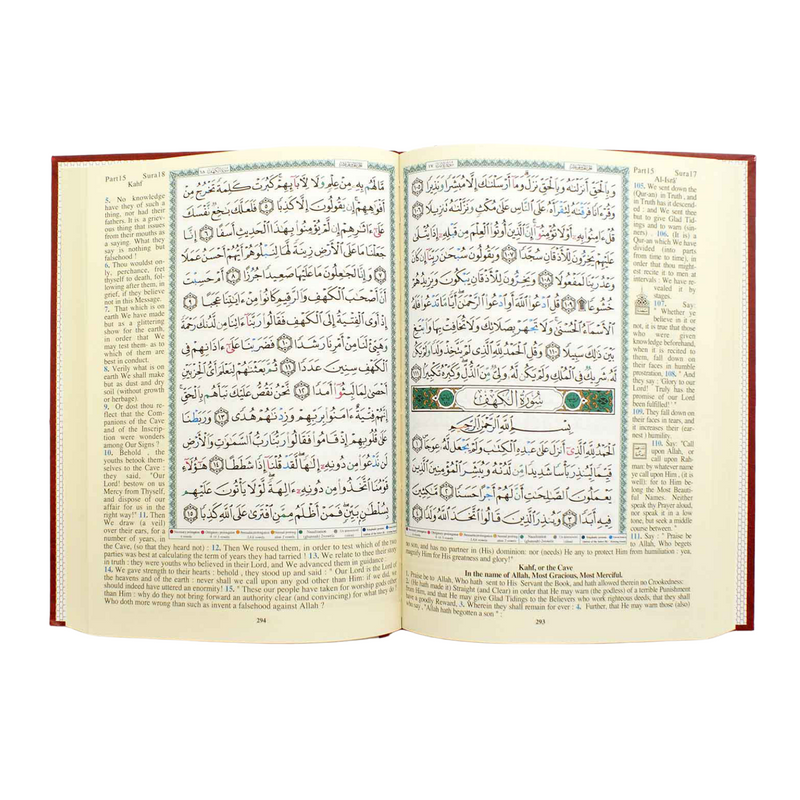 Part15 Sura17
Al-Isrā'
105. We sent down the
(Qur-an) in Truth, and
in Truth has it descend-
ed : and We sent thee
but to give Glad Tid-
ings and to warn (sin-
ners). 106. (It is) a
Qur-an which We have
divided (into parts
from time to time), in
order that thou might-
est recite it to men at
intervals : We have re-
vealed it by
stages.
107. Say:
" Whether ye
believe in it or
not, it is true that
those who were given
knowledge beforehand,
when it is recited to
them, fall down on
their faces in humble
prostration, 108. " And
they say : Glory to our
Lord! Truly has the
promise of our Lord
been fulfilled!' "
109. They fall down on
their faces in tears, and
it increases their (ear-
nest) humility.
110. Say: "Call
upon Allah, or
call upon Rah-
man: by whatever name
ye call upon Him , (it is
well): for to Him be-
long the Most Beauti-
ful Names. Neither
speak thy Prayer aloud,
nor speak it in a low
tone, but seek a middle
course between.
111. Say : " Praise be
to Allah, Who begets
وَبِٱلۡحَقِّ أَنزَلۡنَٰهُ وَبِٱلۡحَقِّ نَزَلَۗ وَمَآ أَرۡسَلۡنَٰكَ إِلَّا مُبَشِّرٗا وَنَذِيرٗا ١٠٥
وَقُرۡءَانٗا فَرَقۡنَٰهُ لِتَقۡرَأَهُۥ عَلَى ٱلنَّاسِ عَلَىٰ مُكۡثٖ وَنَزَّلۡنَٰهُ تَنزِيلٗا ١٠٦
قُلۡ ءَامِنُواْ بِهِۦٓ أَوۡ لَا تُؤۡمِنُوٓاْۚ إِنَّ ٱلَّذِينَ أُوتُواْ ٱلۡعِلۡمَ مِن قَبۡلِهِۦٓ إِذَا يُتۡلَىٰ
عَلَيۡهِمۡ يَخِرُّونَۤ لِلۡأَذۡقَانِۤ سُجَّدٗاۤ ١٠٧ وَيَقُولُونَ سُبۡحَٰنَ رَبِّنَآ إِن كَانَ
وَعۡدُ رَبِّنَا لَمَفۡعُولٗا ١٠٨ وَيَخِرُّونَ لِلۡأَذۡقَانِ يَبۡكُونَ وَيَزِيدُهُمۡ
خُشُوعٗا۩ ١٠٩ قُلِ ٱدۡعُواْ ٱللَّهَ أَوِ ٱدۡعُواْ ٱلرَّحۡمَٰنَۖ أَيّٗا مَّا تَدۡعُواْ فَلَهُ
ٱلۡأَسۡمَآءُ ٱلۡحُسۡنَىٰۚ وَلَا تَجۡهَرۡ بِصَلَاتِكَ وَلَا تُخَافِتۡ بِهَا وَٱبۡتَغِ
بَيۡنَ ذَٰلِكَ سَبِيلٗا ١١٠ وَقُلِ ٱلۡحَمۡدُ لِلَّهِ ٱلَّذِي لَمۡ يَتَّخِذۡ وَلَدٗا وَلَمۡ يَكُن
لَّهُۥ شَرِيكٞ فِي ٱلۡمُلۡكِ وَلَمۡ يَكُن لَّهُۥ وَلِيّٞ مِّنَ ٱلذُّلِّۖ وَكَبِّرۡهُ تَكۡبِيرَۢا ١١١
سُورَةُ الكَهْفِ
بِسۡمِ ٱللَّهِ ٱلرَّحۡمَٰنِ ٱلرَّحِيمِ
ٱلۡحَمۡدُ لِلَّهِ ٱلَّذِيٓ أَنزَلَ عَلَىٰ عَبۡدِهِ ٱلۡكِتَٰبَ وَلَمۡ يَجۡعَل لَّهُۥ عِوَجَاۜ ١
قَيِّمٗا لِّيُنذِرَ بَأۡسٗا شَدِيدٗا مِّن لَّدُنۡهُ وَيُبَشِّرَ ٱلۡمُؤۡمِنِينَ ٱلَّذِينَ
يَعۡمَلُونَ ٱلصَّٰلِحَٰتِ أَنَّ لَهُمۡ أَجۡرًا حَسَنٗا ٢ مَّٰكِثِينَ
فِيهِ أَبَدٗا ٣ وَيُنذِرَ ٱلَّذِينَ قَالُواْ ٱتَّخَذَ ٱللَّهُ وَلَدٗا ٤
no son, and has no partner in (His) dominion: nor (needs) He any to protect Him from humiliation : yea,
magnify Him for His greatness and glory!"
Kahf, or the Cave
In the name of Allah, Most Gracious, Most Merciful.
1. Praise be to Allah, Who hath sent to His Servant the Book, and hath allowed therein no Crookedness:
2. (He hath made it) Straight (and Clear) in order that He may warn (the godless) of a terrible Punishment
from Him, and that He may give Glad Tidings to the Believers who work righteous deeds, that they shall
have a goodly Reward, 3. Wherein they shall remain for ever : 4. Further, that He may warn those (also)
who say , "Allah hath begotten a son" :
293
Part15 Sura18
Kahf
5. No knowledge
have they of such
a thing, nor had their
fathers. It is a griev-
ous thing that issues
from their mouths as
a saying. What they
say is nothing but
falsehood !
6. Thou wouldst on-
ly, perchance, fret
thyself to death, fol-
lowing after them, in
grief, if they believe
not in this Message.
7. That which is on
earth We have made
but as a glittering
show for the earth,
in order that We
may test them- as to
which of them are
best in conduct.
8. Verily what is on
earth We shall make
but as dust and dry
soil (without growth
or herbage).
9. Or dost thou re-
flect that the Com-
panions of the Cave
and of the Inscrip-
tion were wonders
among Our Signs ?
10. Behold , the
youths betook them-
selves to the Cave :
they said, "Our
Lord! bestow on us
Mercy from Thyself,
and dispose of our
affair for us in the
right way!" 11. Then
We draw (a veil)
over their ears, for a
number of years, in
مَّا لَهُم بِهِۦ مِنۡ عِلۡمٖ وَلَا لِأٓبَآئِهِمۡۚ كَبُرَتۡ كَلِمَةٗ تَخۡرُجُ مِنۡ
أَفۡوَٰهِهِمۡۚ إِن يَقُولُونَ إِلَّا كَذِبٗا ٥ فَلَعَلَّكَ بَٰخِعٞ نَّفۡسَكَ
عَلَىٰٓ ءَاثَٰرِهِمۡ إِن لَّمۡ يُؤۡمِنُواْ بِهَٰذَا ٱلۡحَدِيثِ أَسَفًا ٦ إِنَّا
جَعَلۡنَا مَا عَلَى ٱلۡأَرۡضِ زِينَةٗ لَّهَا لِنَبۡلُوَهُمۡ أَيُّهُمۡ أَحۡسَنُ عَمَلٗا
٧ وَإِنَّا لَجَٰعِلُونَ مَا عَلَيۡهَا صَعِيدٗا جُرُزًا ٨ أَمۡ حَسِبۡتَ
أَنَّ أَصۡحَٰبَ ٱلۡكَهۡفِ وَٱلرَّقِيمِ كَانُواْ مِنۡ ءَايَٰتِنَا عَجَبًا ٩
إِذۡ أَوَى ٱلۡفِتۡيَةُ إِلَى ٱلۡكَهۡفِ فَقَالُواْ رَبَّنَآ ءَاتِنَا مِن لَّدُنكَ رَحۡمَةٗ
وَهَيِّئۡ لَنَا مِنۡ أَمۡرِنَا رَشَدٗا ١٠ فَضَرَبۡنَا عَلَىٰٓ ءَاذَانِهِمۡ فِي
ٱلۡكَهۡفِ سِنِينَ عَدَدٗا ١١ ثُمَّ بَعَثۡنَٰهُمۡ لِنَعۡلَمَ أَيُّ ٱلۡحِزۡبَيۡنِ
أَحۡصَىٰ لِمَا لَبِثُوٓاْ أَمَدٗا ١٢ نَّحۡنُ نَقُصُّ عَلَيۡكَ نَبَأَهُم بِٱلۡحَقِّۚ
إِنَّهُمۡ فِتۡيَةٌ ءَامَنُواْ بِرَبِّهِمۡ وَزِدۡنَٰهُمۡ هُدٗى ١٣ وَرَبَطۡنَا
عَلَىٰ قُلُوبِهِمۡ إِذۡ قَامُواْ فَقَالُواْ رَبُّنَا رَبُّ ٱلسَّمَٰوَٰتِ وَٱلۡأَرۡضِ
لَن نَّدۡعُوَاْ مِن دُونِهِۦٓ إِلَٰهٗاۖ لَّقَدۡ قُلۡنَآ إِذٗا شَطَطًا ١٤ هَٰٓؤُلَآءِ
قَوۡمُنَا ٱتَّخَذُواْ مِن دُونِهِۦٓ ءَالِهَةٗۖ لَّوۡلَا يَأۡتُونَ عَلَيۡهِم
بِسُلۡطَٰنِۭ بَيِّنٖۖ فَمَنۡ أَظۡلَمُ مِمَّنِ ٱفۡتَرَىٰ عَلَى ٱللَّهِ كَذِبٗا ١٥
the Cave, (so that they heard not) : 12. Then We roused them, in order to test which of the two
parties was best at calculating the term of years they had tarried ! 13. We relate to thee their story
in truth : they were youths who believed in their Lord, and We advanced them in guidance :
14. We gave strength to their hearts : behold , they stood up and said : "Our Lord is the Lord of
the heavens and of the earth : never shall we call upon any god other than Him: if we did, we
should indeed have uttered an enormity! 15. " These our people have taken for worship gods other
than Him : why do they not bring forward an authority clear (and convincing) for what they do ?
Who doth more wrong than such as invent a falsehood against Allah ?
294